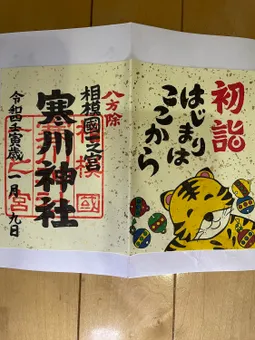 初詣
はじまりは
ここから
八方除
相模國一之宮
寒川神社
令和四壬寅歳一月九日